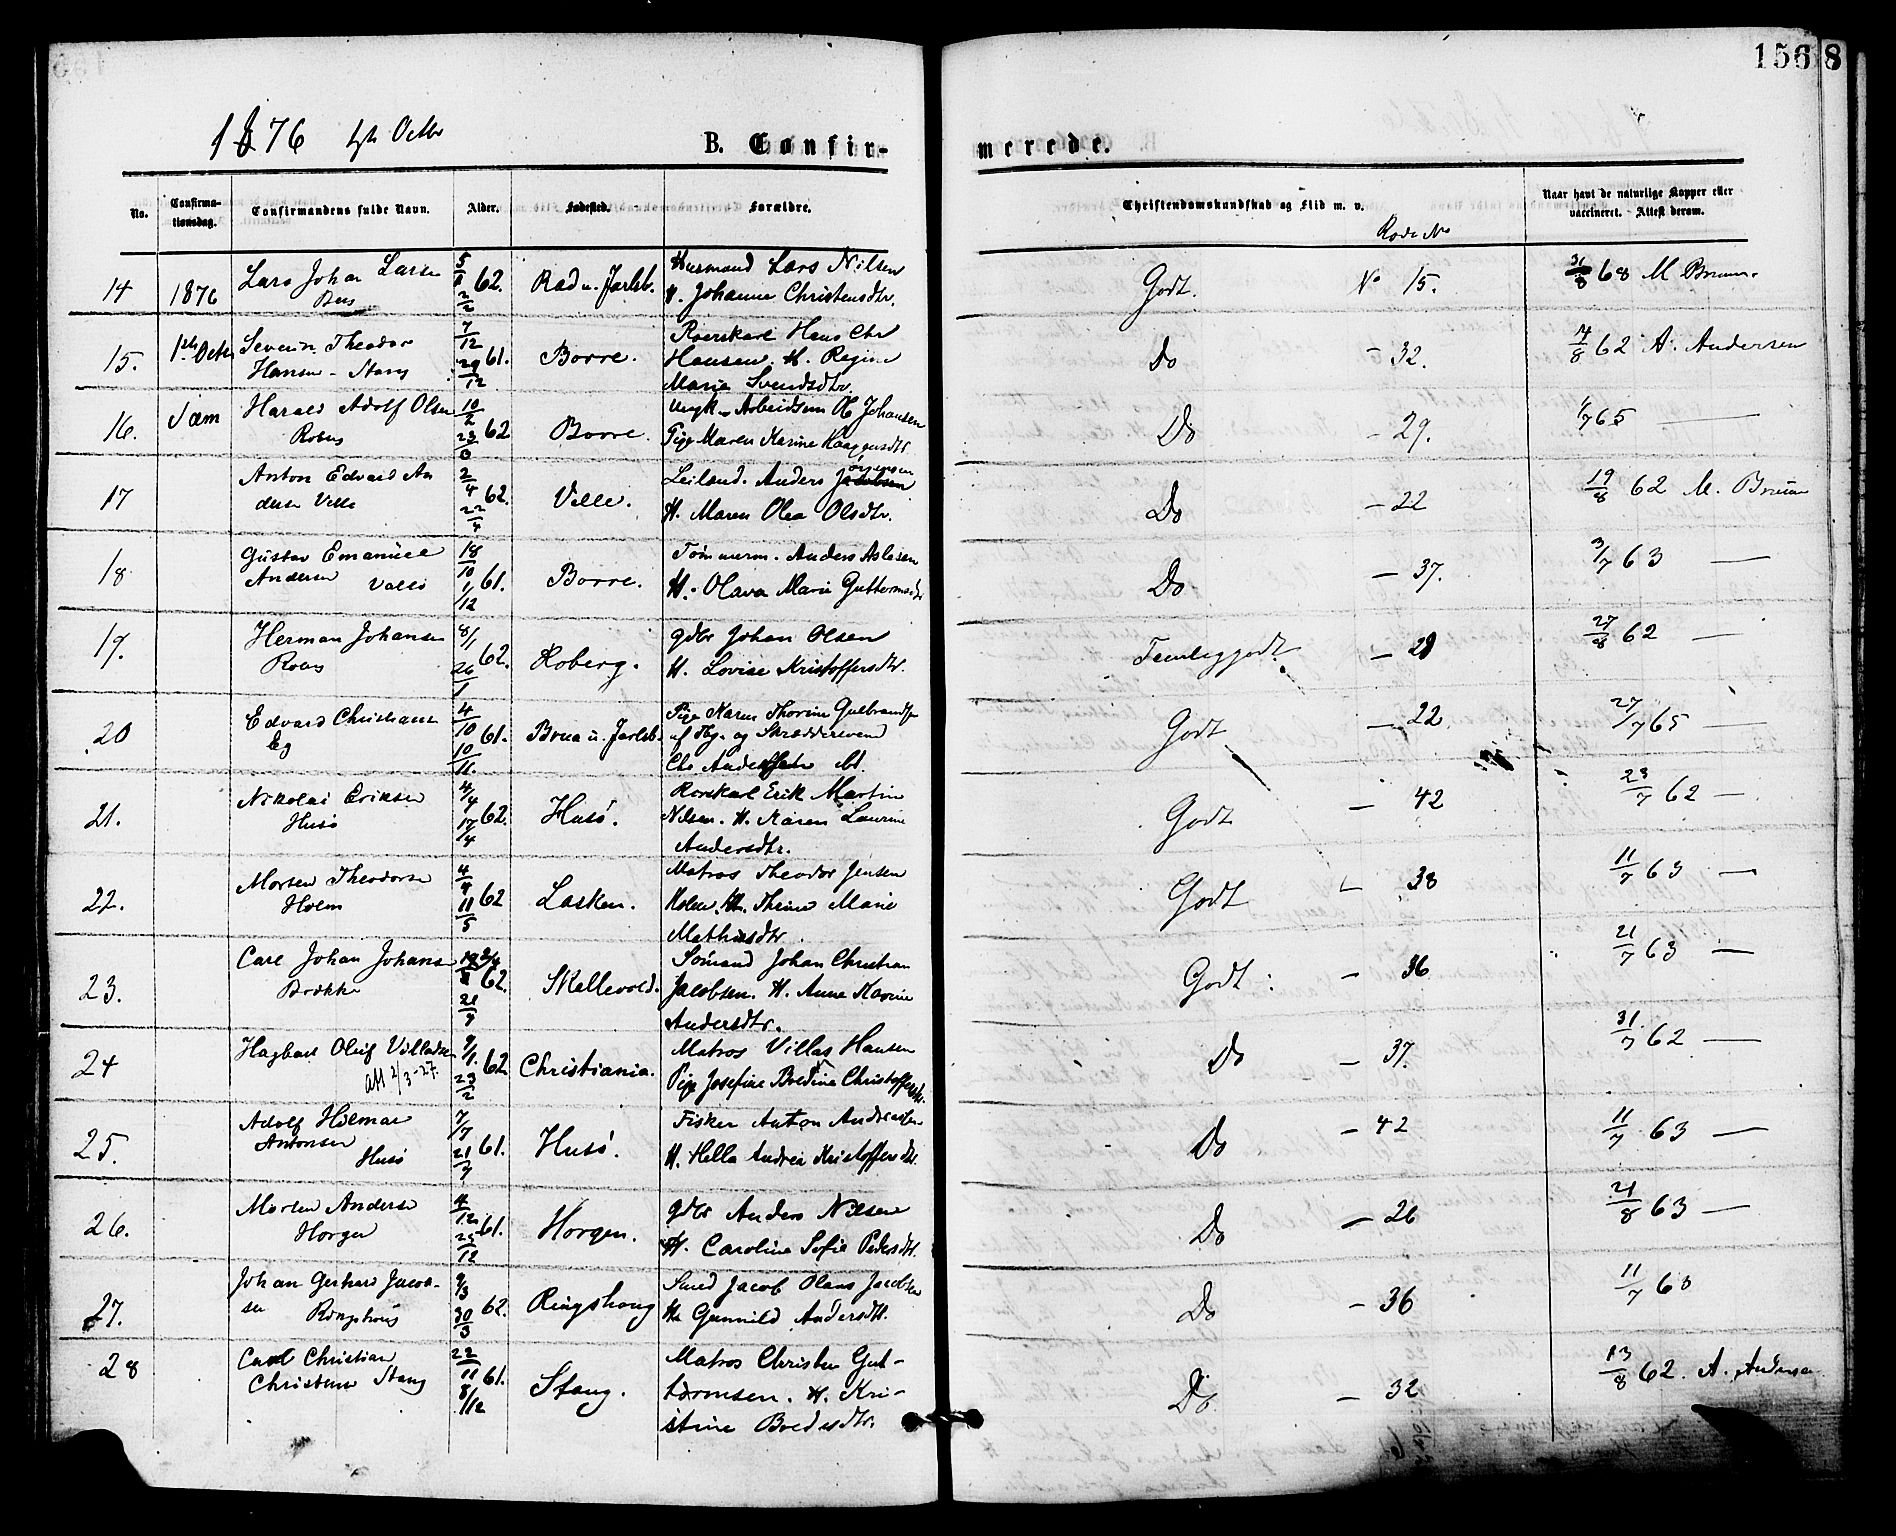 156 8
1876 1ste Octbr
B. Confir-
merede.
No.
Confirma-
tionsdag.
Confirmandens fulde Navn.
Alder.
Fødested.
Forældre.
Christendomskundskab og Flid m. v.
Rode No
Naar havt de naturlige Kopper eller
vaccineret. Attest derom.
14 1876 Lars Johan Larsen
5/1 2/2 62. Rad u. Jarlsb.
Husmand Lars Nilsen
H. Johanne Christensdtr.
Godt. No 15. 31/8 68 M Bruun.
15. 1ste Octbr Severin Theodor
Hansen - Stang
7/12 29/12 61. Borre.
Hans Chr
Hansen. H. Regine
Maria Svendsdtr.
do - 32. 7/8 62 A. Andersen
16. Harald Adolf Olsen
10/2 23/3 62 Borre.
Ungk. Arbeidsm Ol Johansen
Pige Maren Karine Haagensdtr
Do - 29. 65
17 Anton Edvard An
dersen Velle
2/4 22/4 62. Velle.
Leilænd. Anders Jörgensen
H. Maren Olea Olsdtr.
Do - 22 19/8 62 M. Bruun
18 Gustav Emanuel
Andersen Vallö
18/10 1/12 61. Borre.
Tömmerm. Anders Aslesen
H. Olava Marie Guttormsdtr
Do - 37. 3/7 63 —
19. Herman Johansen
8/1 26/1 62. Roberg.
Gdbr Johan Olsen
H. Lovise Kristoffersdtr.
Temliggodt - 27/8 62 —
20 Edvard Christiansen
Eg
4/10 10/11. 61. Brua u. Jarlsb.
Pige Karen Thorine Gulbrandsen
og Skræddersvend
Chr. Andersen
Godt - 22 27/7 65 —
21. Nikolai Eriksen
Husö
4/4 17/4 62. Husö.
Rorskarl Erik Martin
Nilsen. H. Karen Laurine
Andersdtr.
Godt - 42 23/7 62 —
22. Morten Theodorsen
Holm
4/4 11/5 62 Lasken.
Matros Theodor Jensen
Holm. H. Thrine Marie
Mathisdtr
Godt - 38 11/7 63 —
23. Carl Johan Johansen
Brekke
62. Skallevold.
Sömand Johan Christian
Jacobsen. H. Anne Karine
Andersdtr.
Godt: - 36 21/7 63 —
24 Hagbart Oluf Villadsen
Att 2/3-27.
9/1. 23/2 62 Christiania.
Matros Villas Hansen
Pige Josefine Bredine Christoffersdtr.
Do - 37. 31/7 62 —
25. Adolf Hilmar
Antonsen
Husö
7/7 21/7 61. Husö.
Fisker Anton Andreasen
H. Hella Andrea Kristoffersdtr.
Do - 42 11/7 63 —
26. Morten Andersen
Horgen
4/12 25/12 61. Horgen.
Gdbr Anders Nilsen
H. Caroline Sofie Pedersdtr.
Do - 26 21/8 63 —
27. Johan Gerhard Jacob-
sen Ringshoug
9/3 30/3 62. Ringshoug
Smed Jacob Olaus Jacobsen
H. Gunnild Andersdtr.
Do - 36 11/7 63
28 Carl Christian
Christensen Stang
22/11 8/12 61. Stang.
Matros Christen Gut-
tormsen. H. Kri-
stine Bredesdtr.
Do - 32 13/8 62. A. Andersen